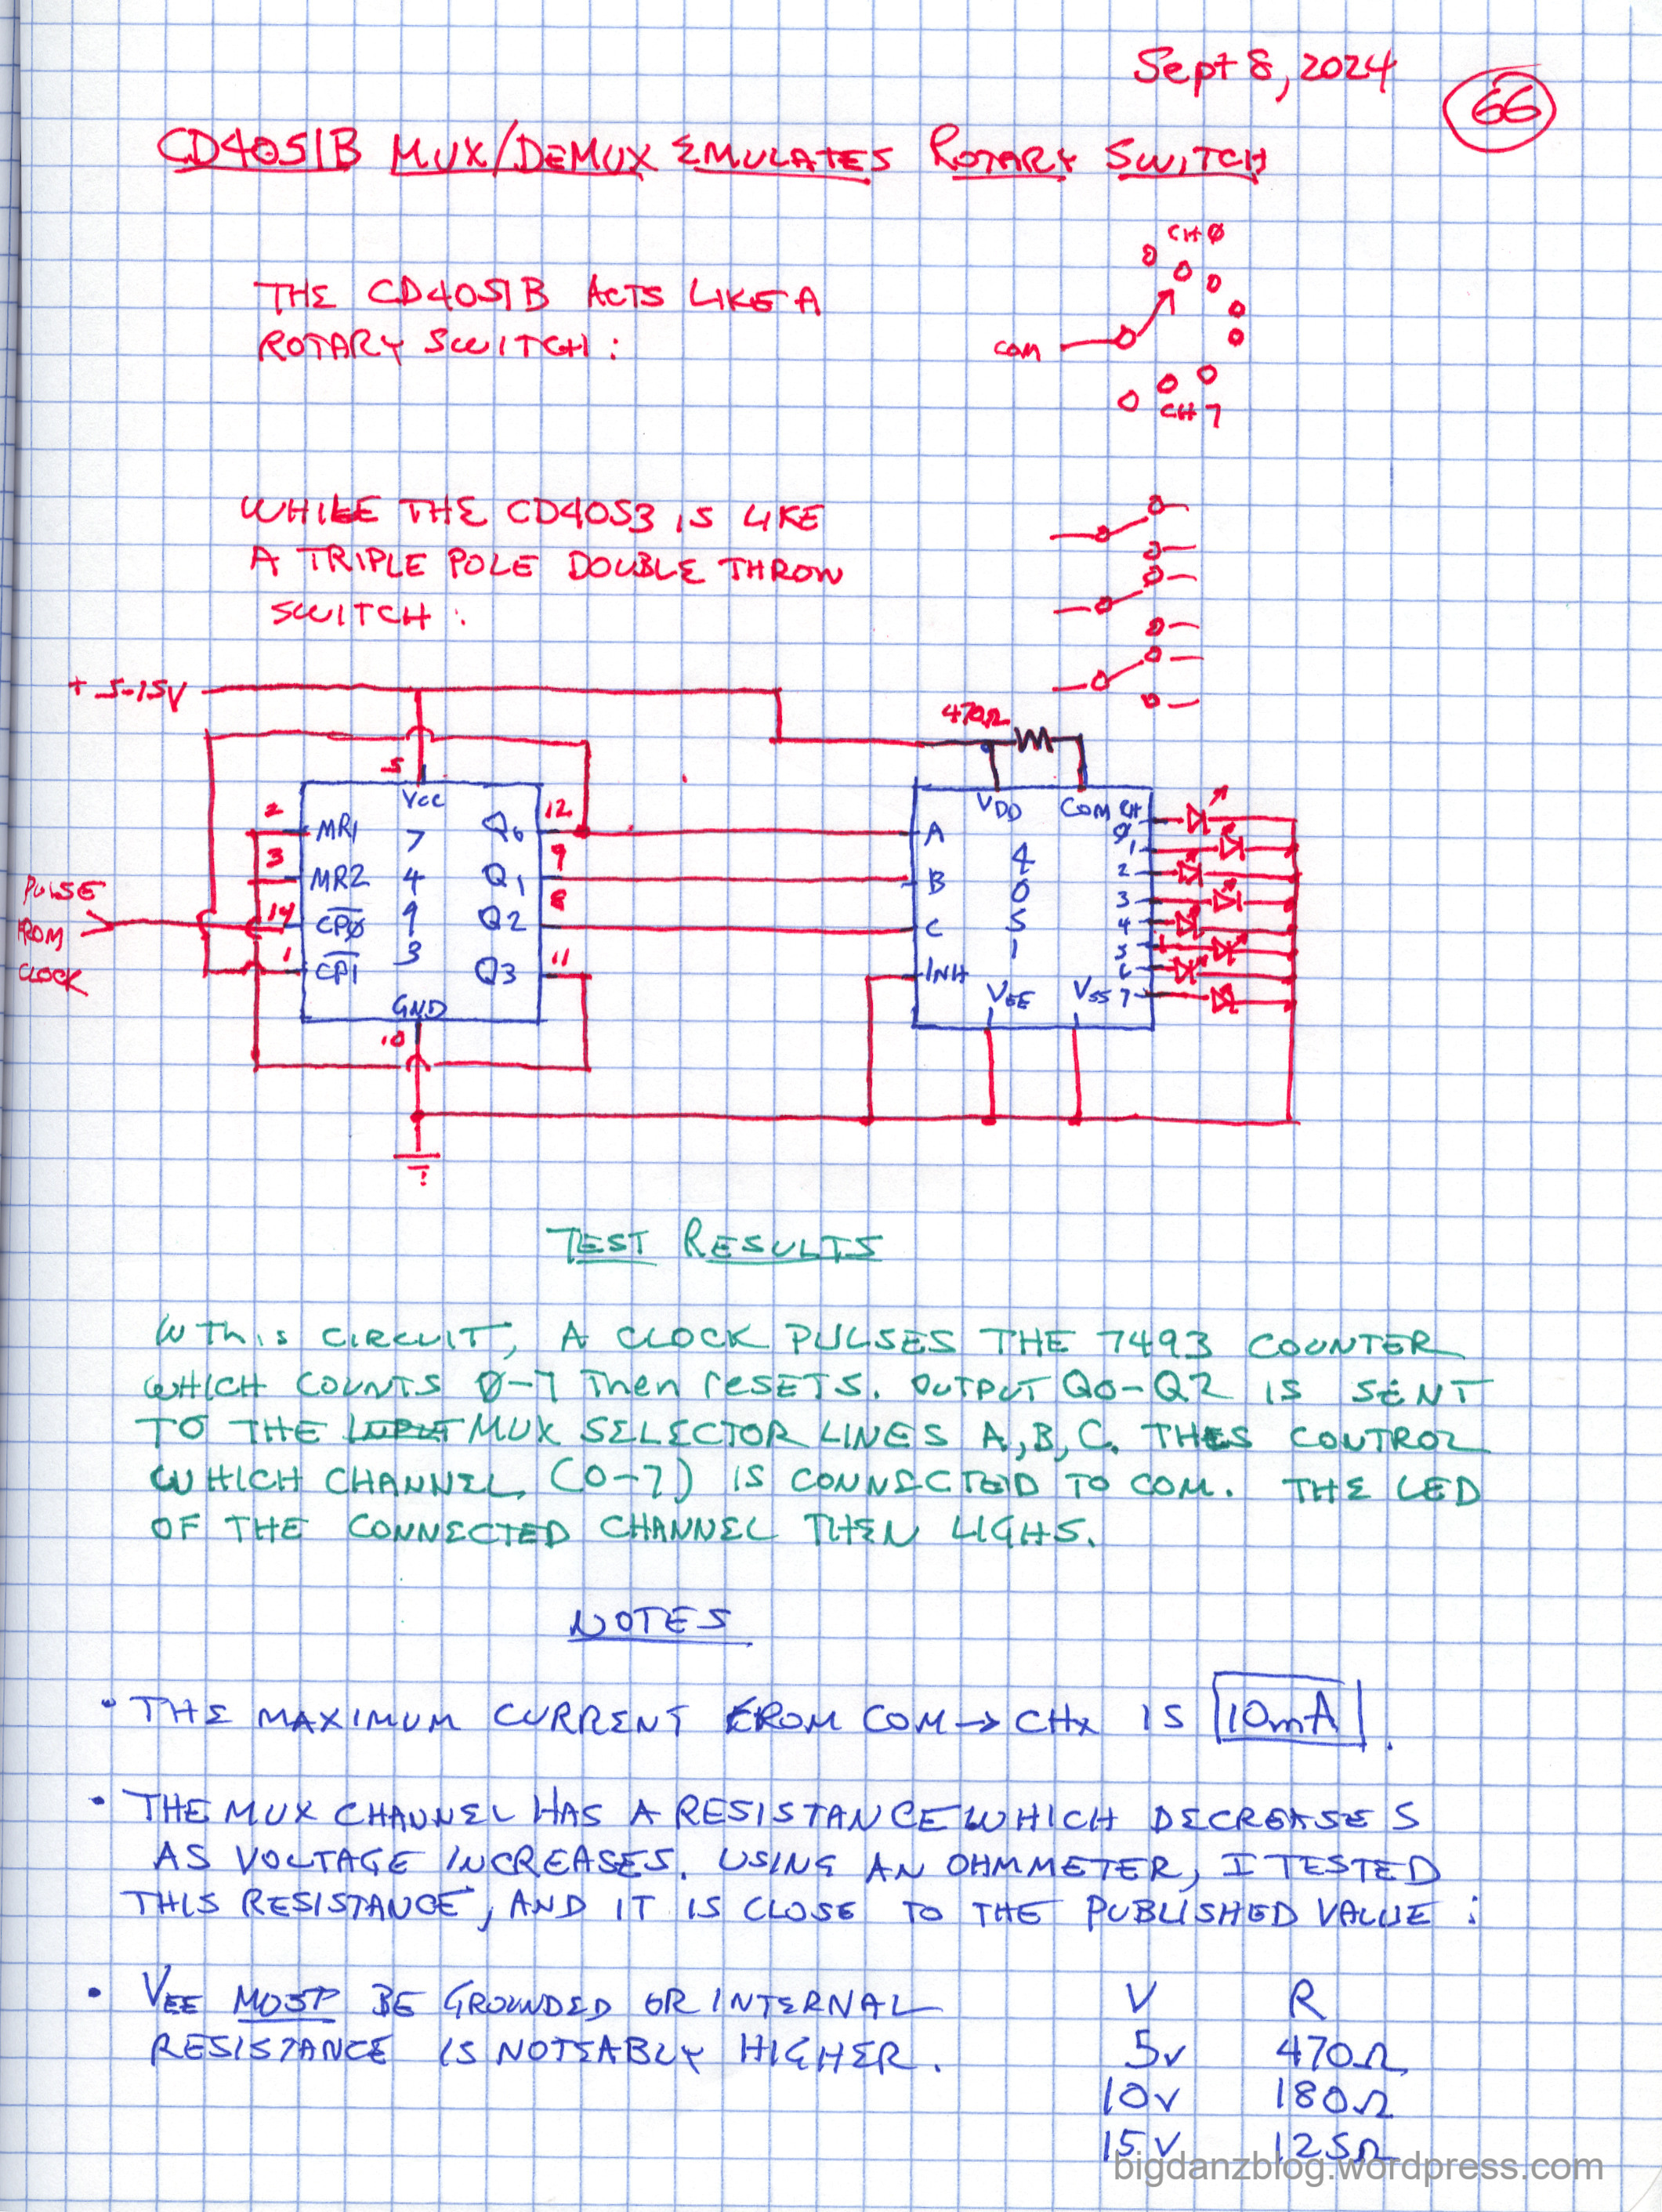 Sept 8, 2024
66
CD4051B MUX/DEMUX EMULATES ROTARY SWITCH
CHØ
THE CD4051B ACTS LIKE A
ROTARY SWITCH:
COM
CH7
WHILE THE CD4053 IS LIKE
A TRIPLE POLE DOUBLE THROW
SWITCH:
+5-15V
470Ω
5
VCC
VDD COM CH
2 MR1 7 Q0 12 A Ø
3 MR2 4 Q1 9 B 4 1
PULSE 2
14 CPØ 9 Q2 8 C 0 3
ROM 5 4
1 CP1 3 Q3 11 INH 1 5
CLOCK 6
GND VEE VSS 7
10
TEST RESULTS
W THIS CIRCUIT, A CLOCK PULSES THE 7493 COUNTER
WHICH COUNTS Ø-7 THEN RESETS. OUTPUT Q0-Q2 IS SENT
TO THE MUX SELECTOR LINES A,B,C. THES CONTROL
WHICH CHANNEL (0-7) IS CONNECTED TO COM. THE LED
OF THE CONNECTED CHANNEL THEN LIGHS.
NOTES
• THE MAXIMUM CURRENT FROM COM→CHx IS 10mA.
• THE MUX CHANNEL HAS A RESISTANCE WHICH DECREASES
AS VOLTAGE INCREASES. USING AN OHMMETER, I TESTED
THIS RESISTANCE, AND IT IS CLOSE TO THE PUBLISHED VALUE:
• VEE MUST BE GROUNDED OR INTERNAL
RESISTANCE IS NOTEABLY HIGHER.
V R
5v 470Ω
10v 180Ω
15V 125Ω
bigdanzblog.wordpress.com